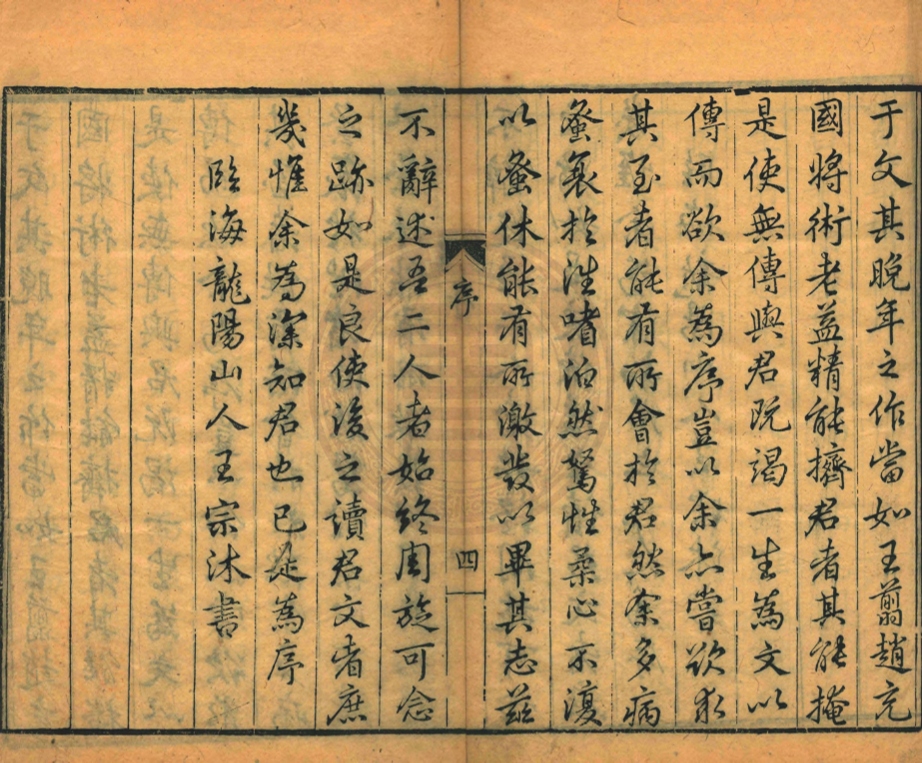 于文其晚年之作當如王翦趙充
國將術老益精能擠君者其能掩
是使無傳與君既竭一生為文以
傳而欲余為序豈以余亦嘗欲求
其至者能有所會於君然余多病
蚤衰於淡嗜泊然駑性柔心不復
以蚤休能有所激發以畢其志茲
序
四
不辭述吾二人者始終周旋可念
之跡如是良使後之讀君文者庶
幾惟余為深知君也已是為序
臨海龍陽山人王宗沐書